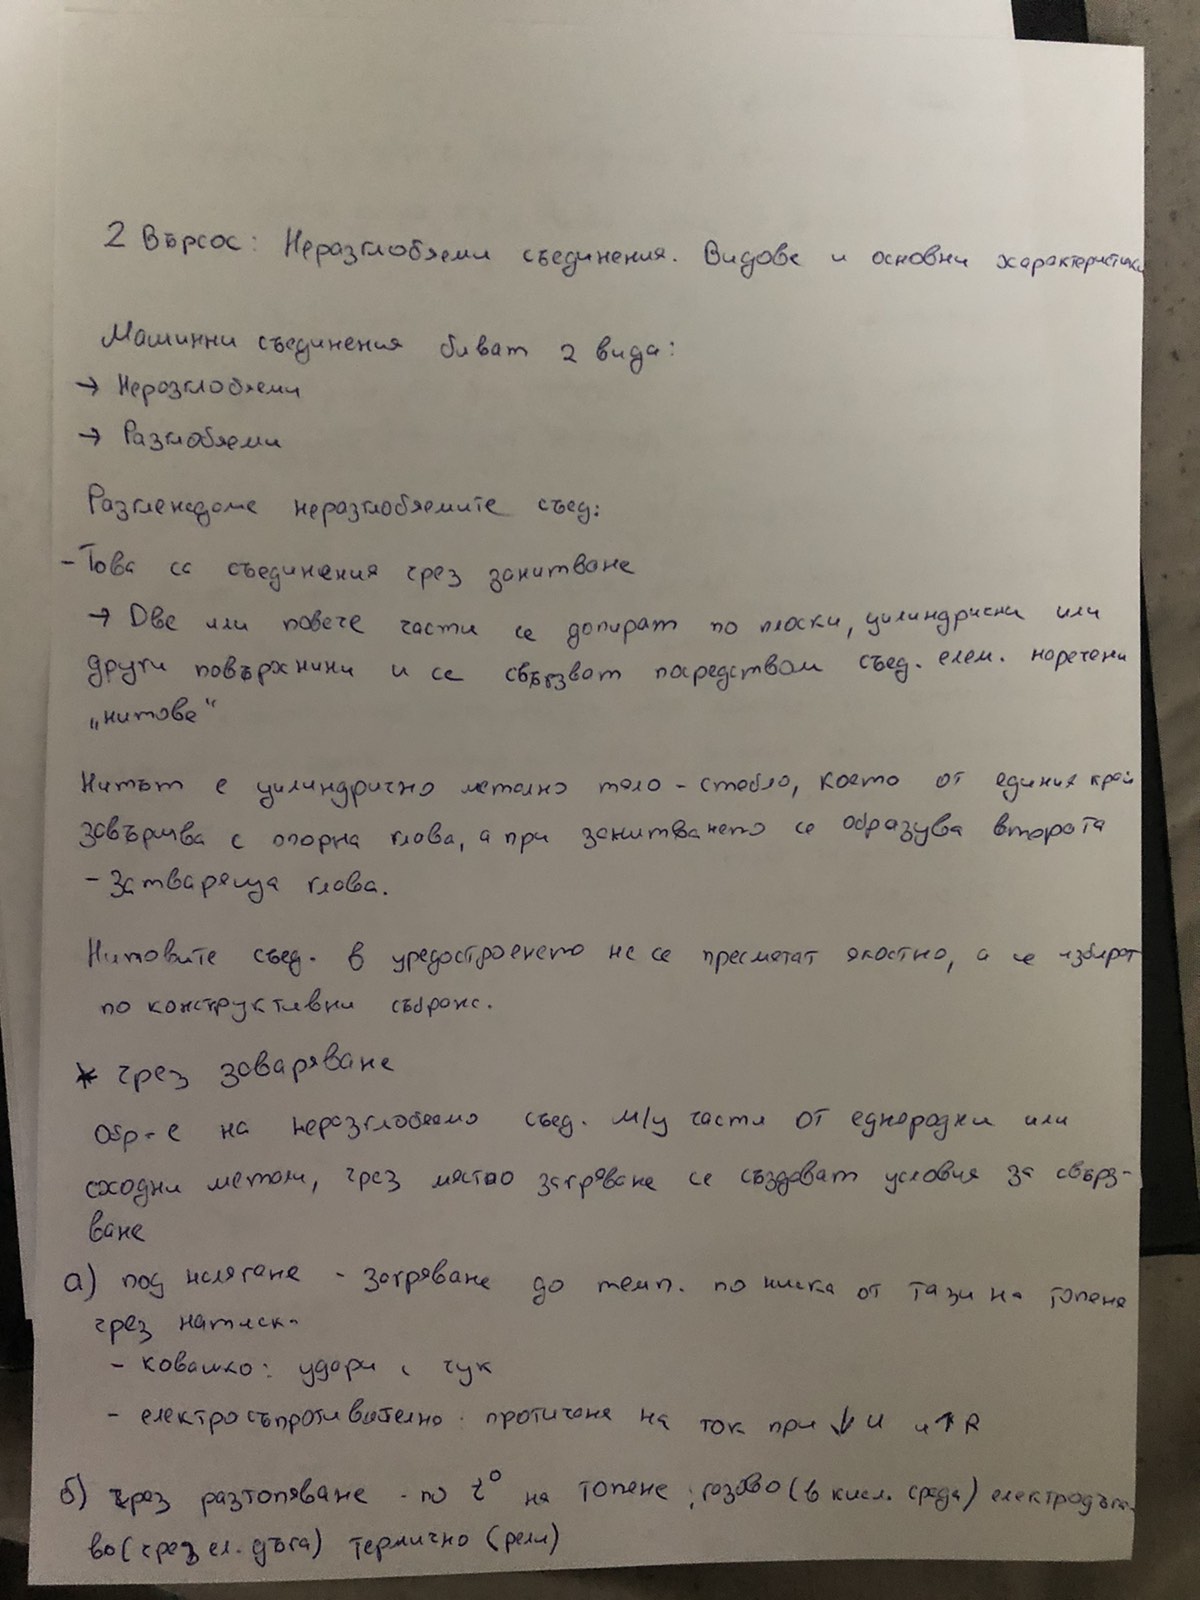 2 Върсос: Неразглобяеми съединения. Видове и основни характеристики
Машинни съединения биват 2 вида:
→ Неразглобяеми
→ Разглобяеми
Разглеждаме неразглобяемите съед:
- Това са съединения чрез занитване
→ Две или повече части се допират по плоски, цилиндрисни или
други повърхнини и се свързват посредством съед. елем. наречени
„нитове“
Нитът е цилиндрично метално тяло - стебло, което от единия край
завършва с опорна глава, а при занитването се образува втората
- Затваряща глава.
Нитовите съед. в уредостроенето не се пресметат якостно, а се избират
по конструктивни събраж.
* чрез заваряване
Обр-е на неразглобяемо съед. м/у части от еднородни или
сходни метали, чрез мястно загряване се създават условия за свърз-
ване
а) под налягане - загряване до темп. по ниска от тази на топене
чрез натиск.
- ковашко: удари с чук
- електросъпротивително: протичане на ток при ↓ U и ↑ R
б) чрез разтопяване - по t° на топене; газово (в кисл. среда) електродъго-
во (чрез ел. дъга) термично (рели)